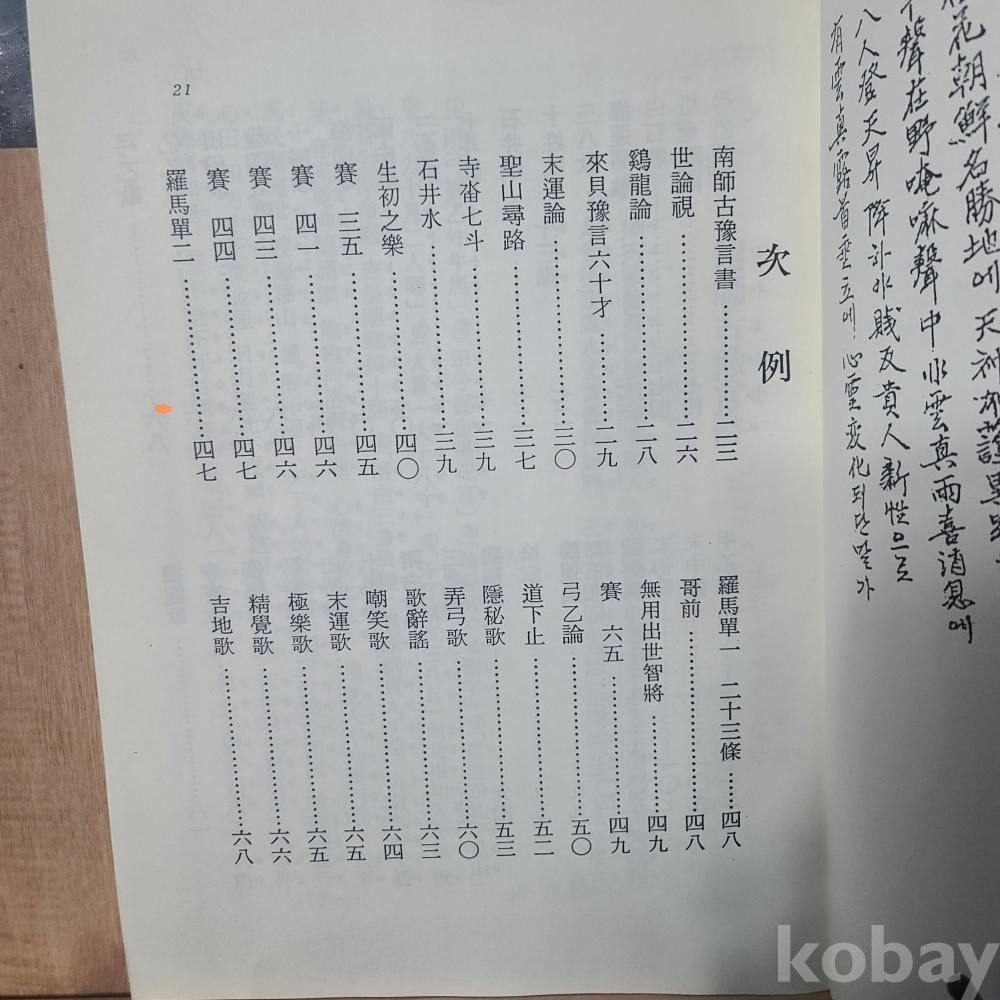 花朝鮮名勝地에 天神加護
聲在野唵嘛聲中 水雲真雨喜消息에
八人登天昇降 水賤反貴人新性으로
有雲真露首垂立에 心靈変化되단말가
次例
南師古豫言書……二三
世論視……二六
鷄龍論……二八
來貝豫言六十才……二九
末運論……三〇
聖山尋路……三七
寺畓七斗……三九
石井水……三九
生初之樂……四〇
賽 三五……四五
賽 四一……四六
賽 四三……四六
賽 四四……四七
羅馬單二……四七
羅馬單一 二十三條……四八
哥前……四八
無用出世智將……四九
賽 六五……四九
弓乙論……五〇
道下止……五二
隱秘歌……五三
弄弓歌……六〇
歌辭謠……六三
嘲笑歌……六四
末運歌……六五
極樂歌……六五
精覺歌……六六
吉地歌……六八
21
kobay